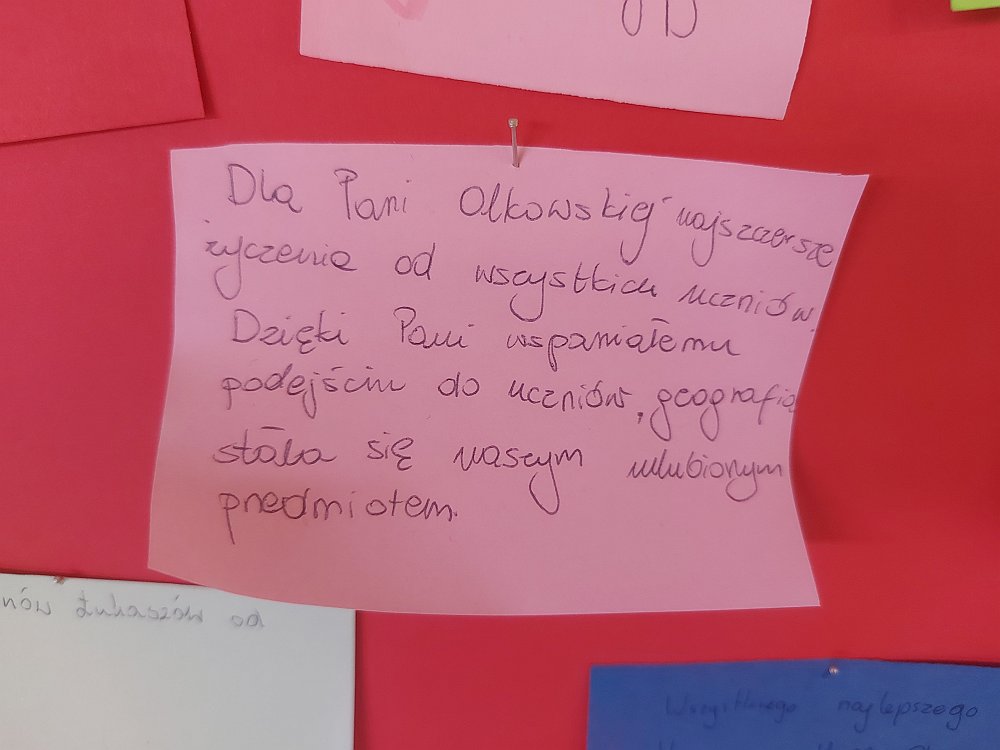 Dla Pani Olkowskiej najszczersze
życzenia od wszystkich uczniów.
Dzięki Pani wspaniałemu
podejściu do uczniów, geografia
stała się naszym ulubionym
przedmiotem.
od
Wszystkiego najlepszego